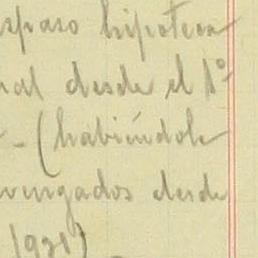 spaso hipoteca
al desde el 1º
- (habiéndole
vengados desde
1921)